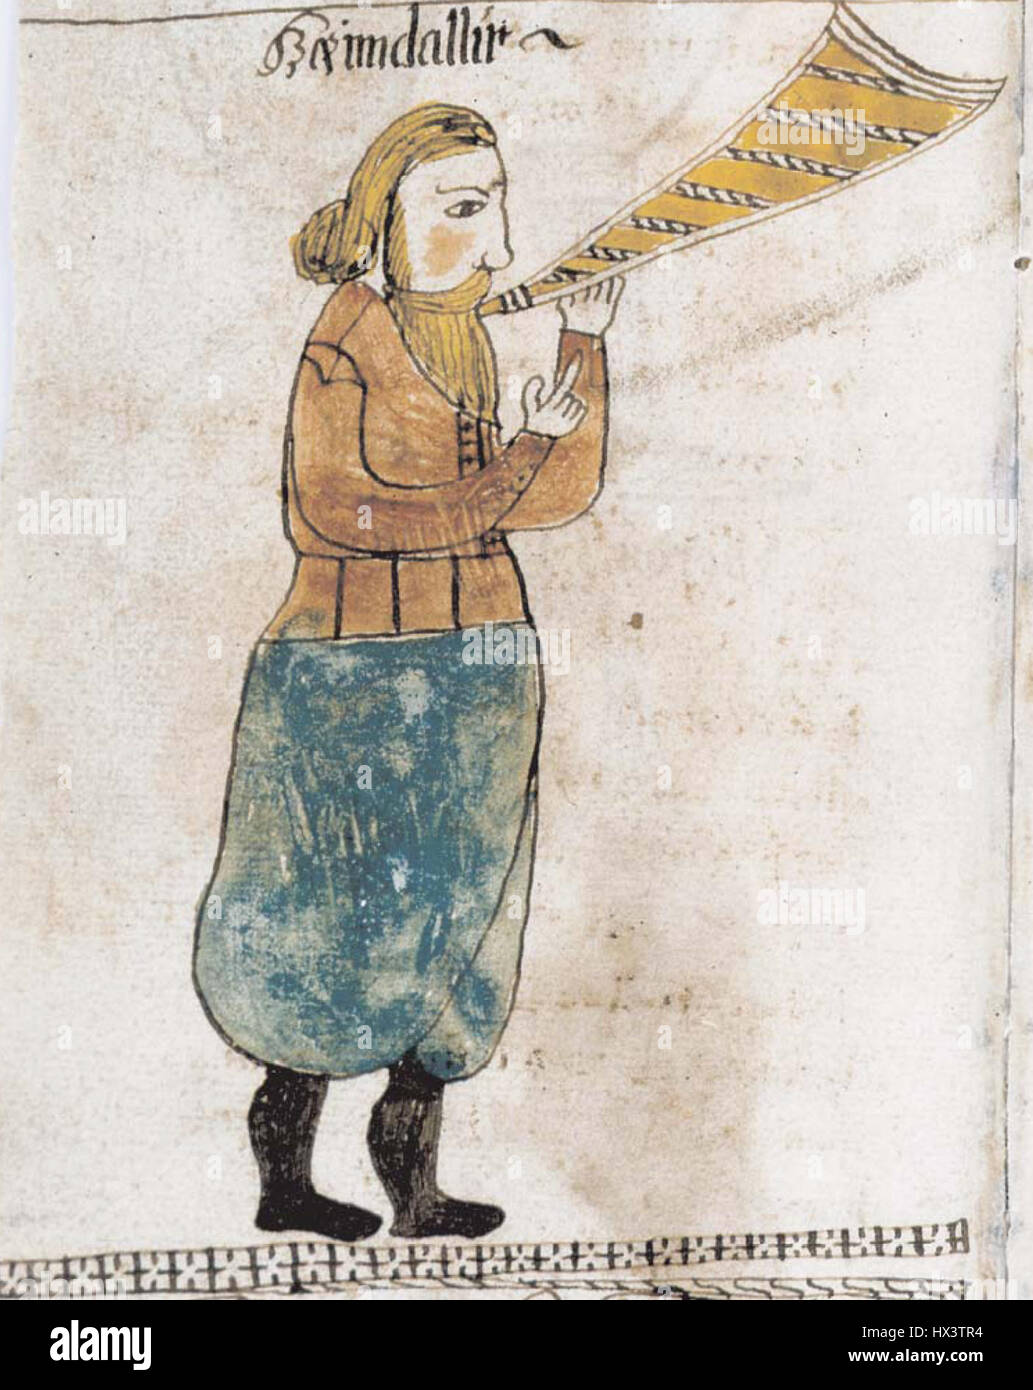 Heimdallur
alamy
alamy
a
a
alamy
alamy
a
a
alamy
alamy
a
a
alamy
Image ID: HX3TR4
www.alamy.com